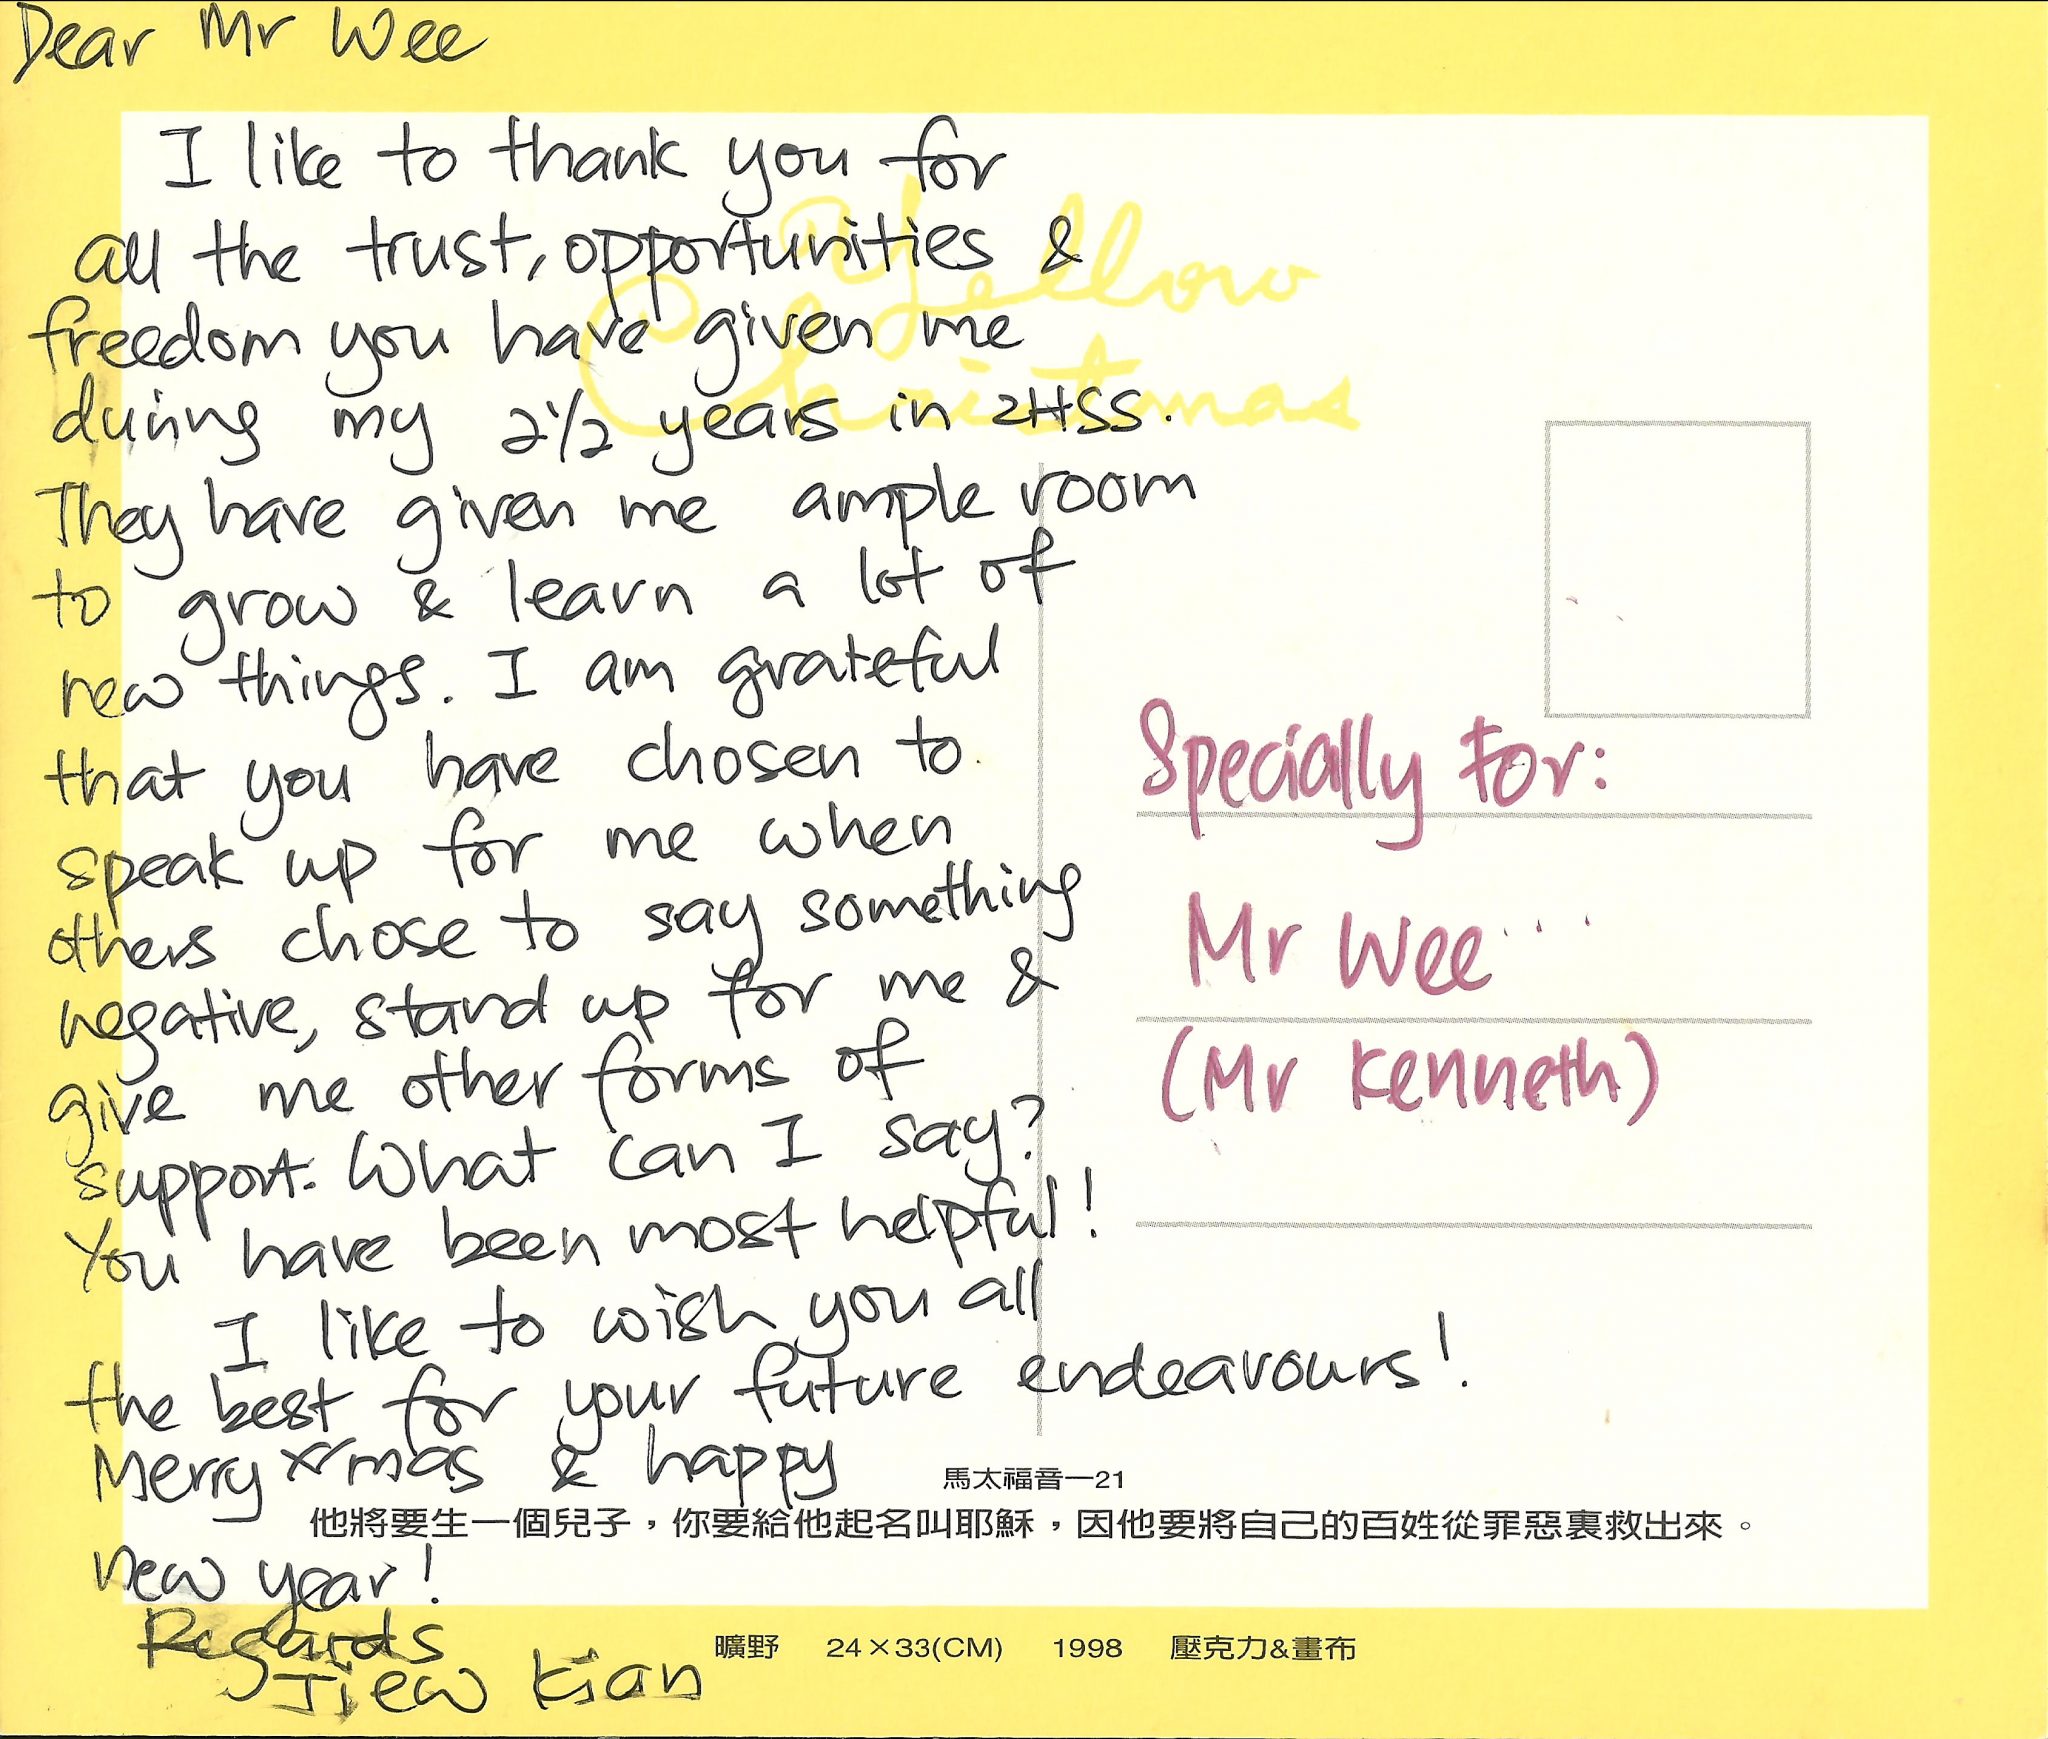 Dear Mr Wee
I like to thank you for
all the trust, opportunities &
freedom you have given me
during my 2 1/2 years in ZHSS.
They have given me ample room
to grow & learn a lot of
new things. I am grateful
that you have chosen to
speak up for me when
others chose to say something
negative, stand up for me &
give me other forms of
support. What can I say?
You have been most helpful!
I like to wish you all
the best for your future endeavours!
Merry X'mas & happy
new year!
Regards
Jiew Kian
Yellow
Christmas
Specially For:
Mr Wee...
(Mr Kenneth)
馬太福音一21
他將要生一個兒子，你要給他起名叫耶穌，因他要將自己的百姓從罪惡裏救出來。
曠野 24×33(CM) 1998 壓克力&畫布